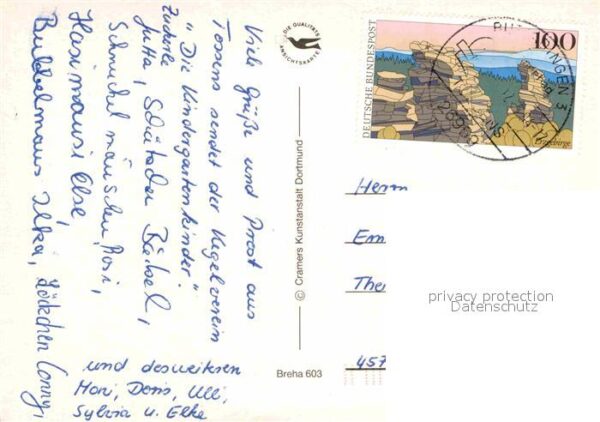 Viele Grüße und Prost aus
Tossens sendet der Kegelverein
"Die Kindergartenkinder"
Jutta, Bärbel,
Rosi,
Hasimausi Else,
Buddelmaus Ilka, Löckchen Conny,
und desweiteren
Hori, Doris, Ulli,
Sylvia u. Elke
DIE QUALITÄTS
ANSICHTSKARTE
© Cramers Kunstanstalt Dortmund
Breha 603
DEUTSCHE BUNDESPOST
100
Erzgebirge
INGEN 3
Herrn
Em
The
457
privacy protection
Datenschutz